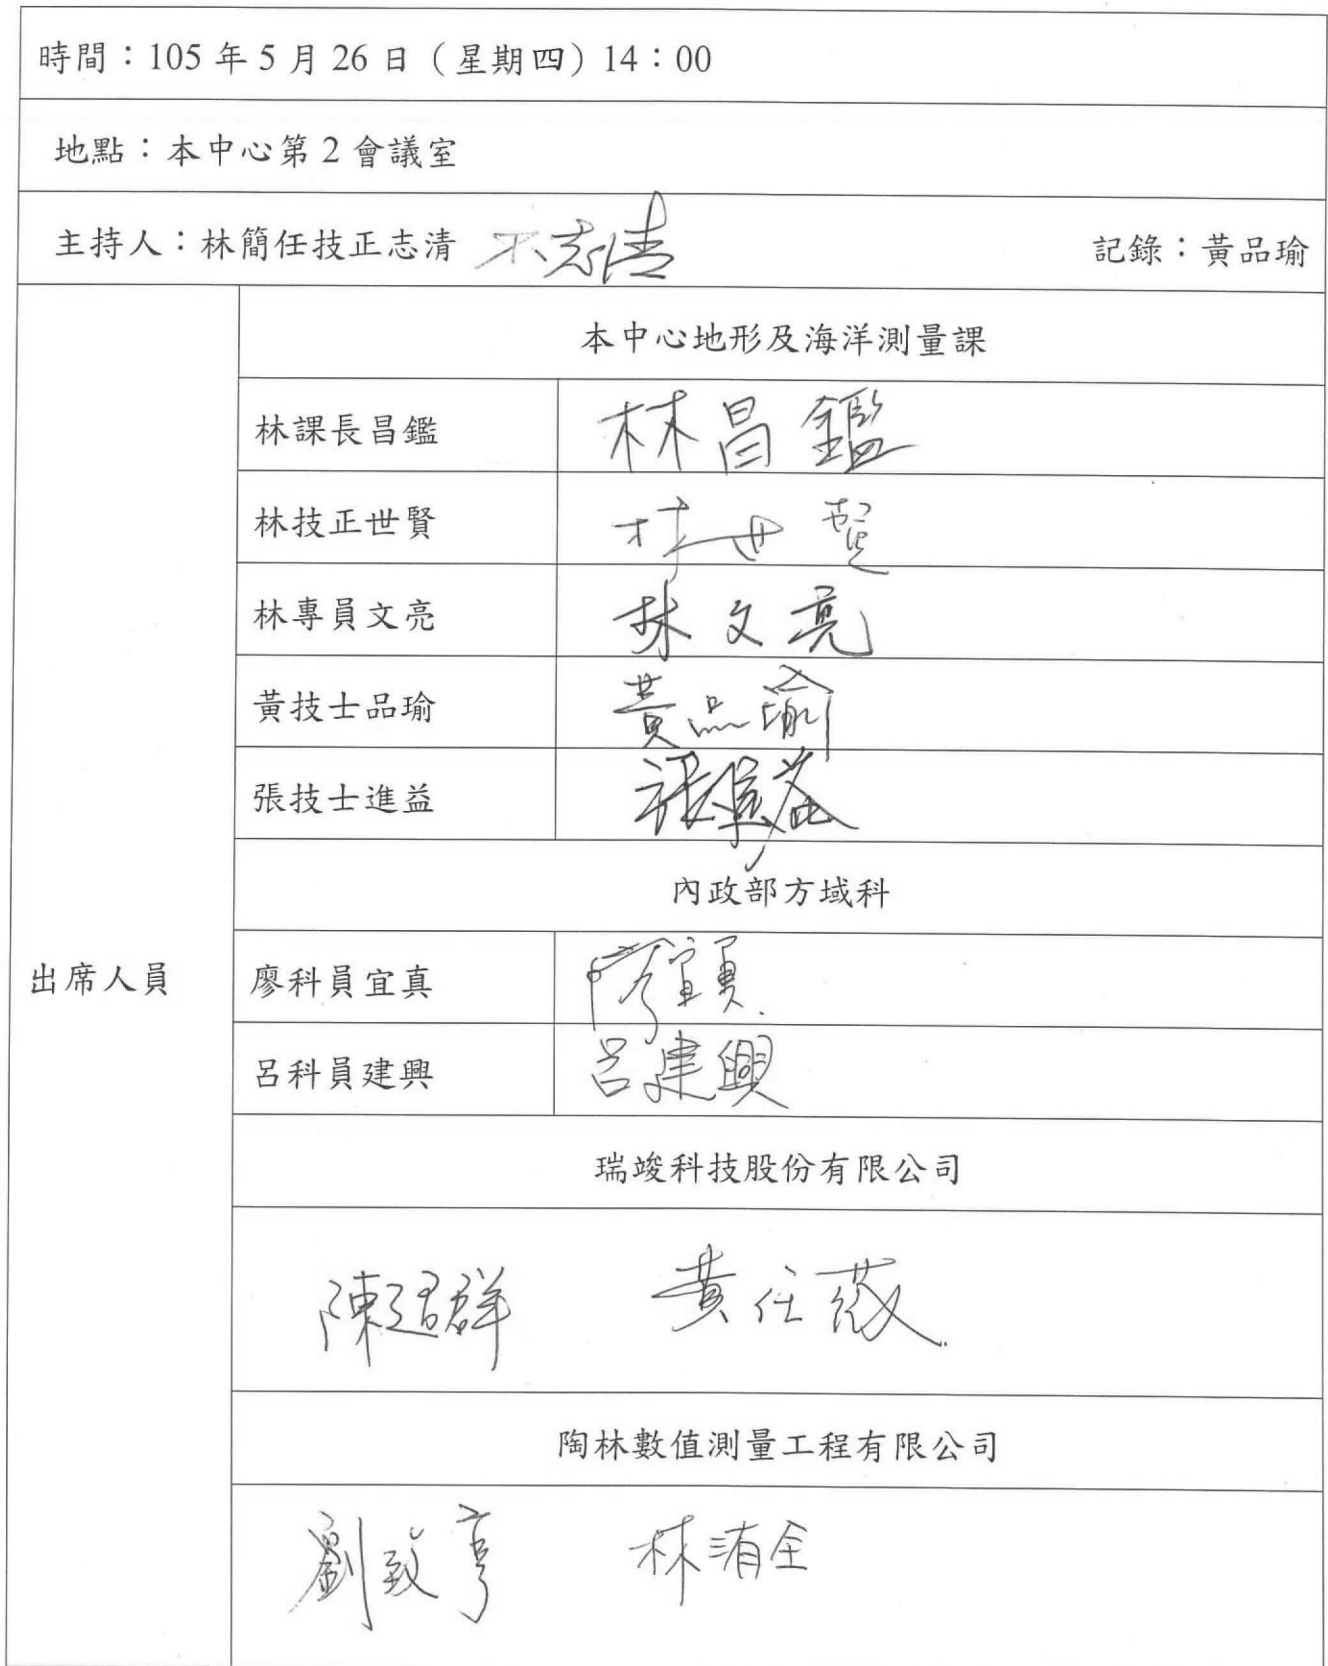 時間：105 年 5 月 26 日（星期四）14：00
地點：本中心第 2 會議室
主持人：林簡任技正志清 林志清 記錄：黃品瑜
本中心地形及海洋測量課
林課長昌鑑 林昌鑑
林技正世賢 林世賢
林專員文亮 林文亮
黃技士品瑜 黃品瑜
張技士進益 張進益
內政部方域科
出席人員
廖科員宜真 廖宜真
呂科員建興 呂建興
瑞竣科技股份有限公司
陳廷群 黃任薇
陶林數值測量工程有限公司
劉致亨 林洧全